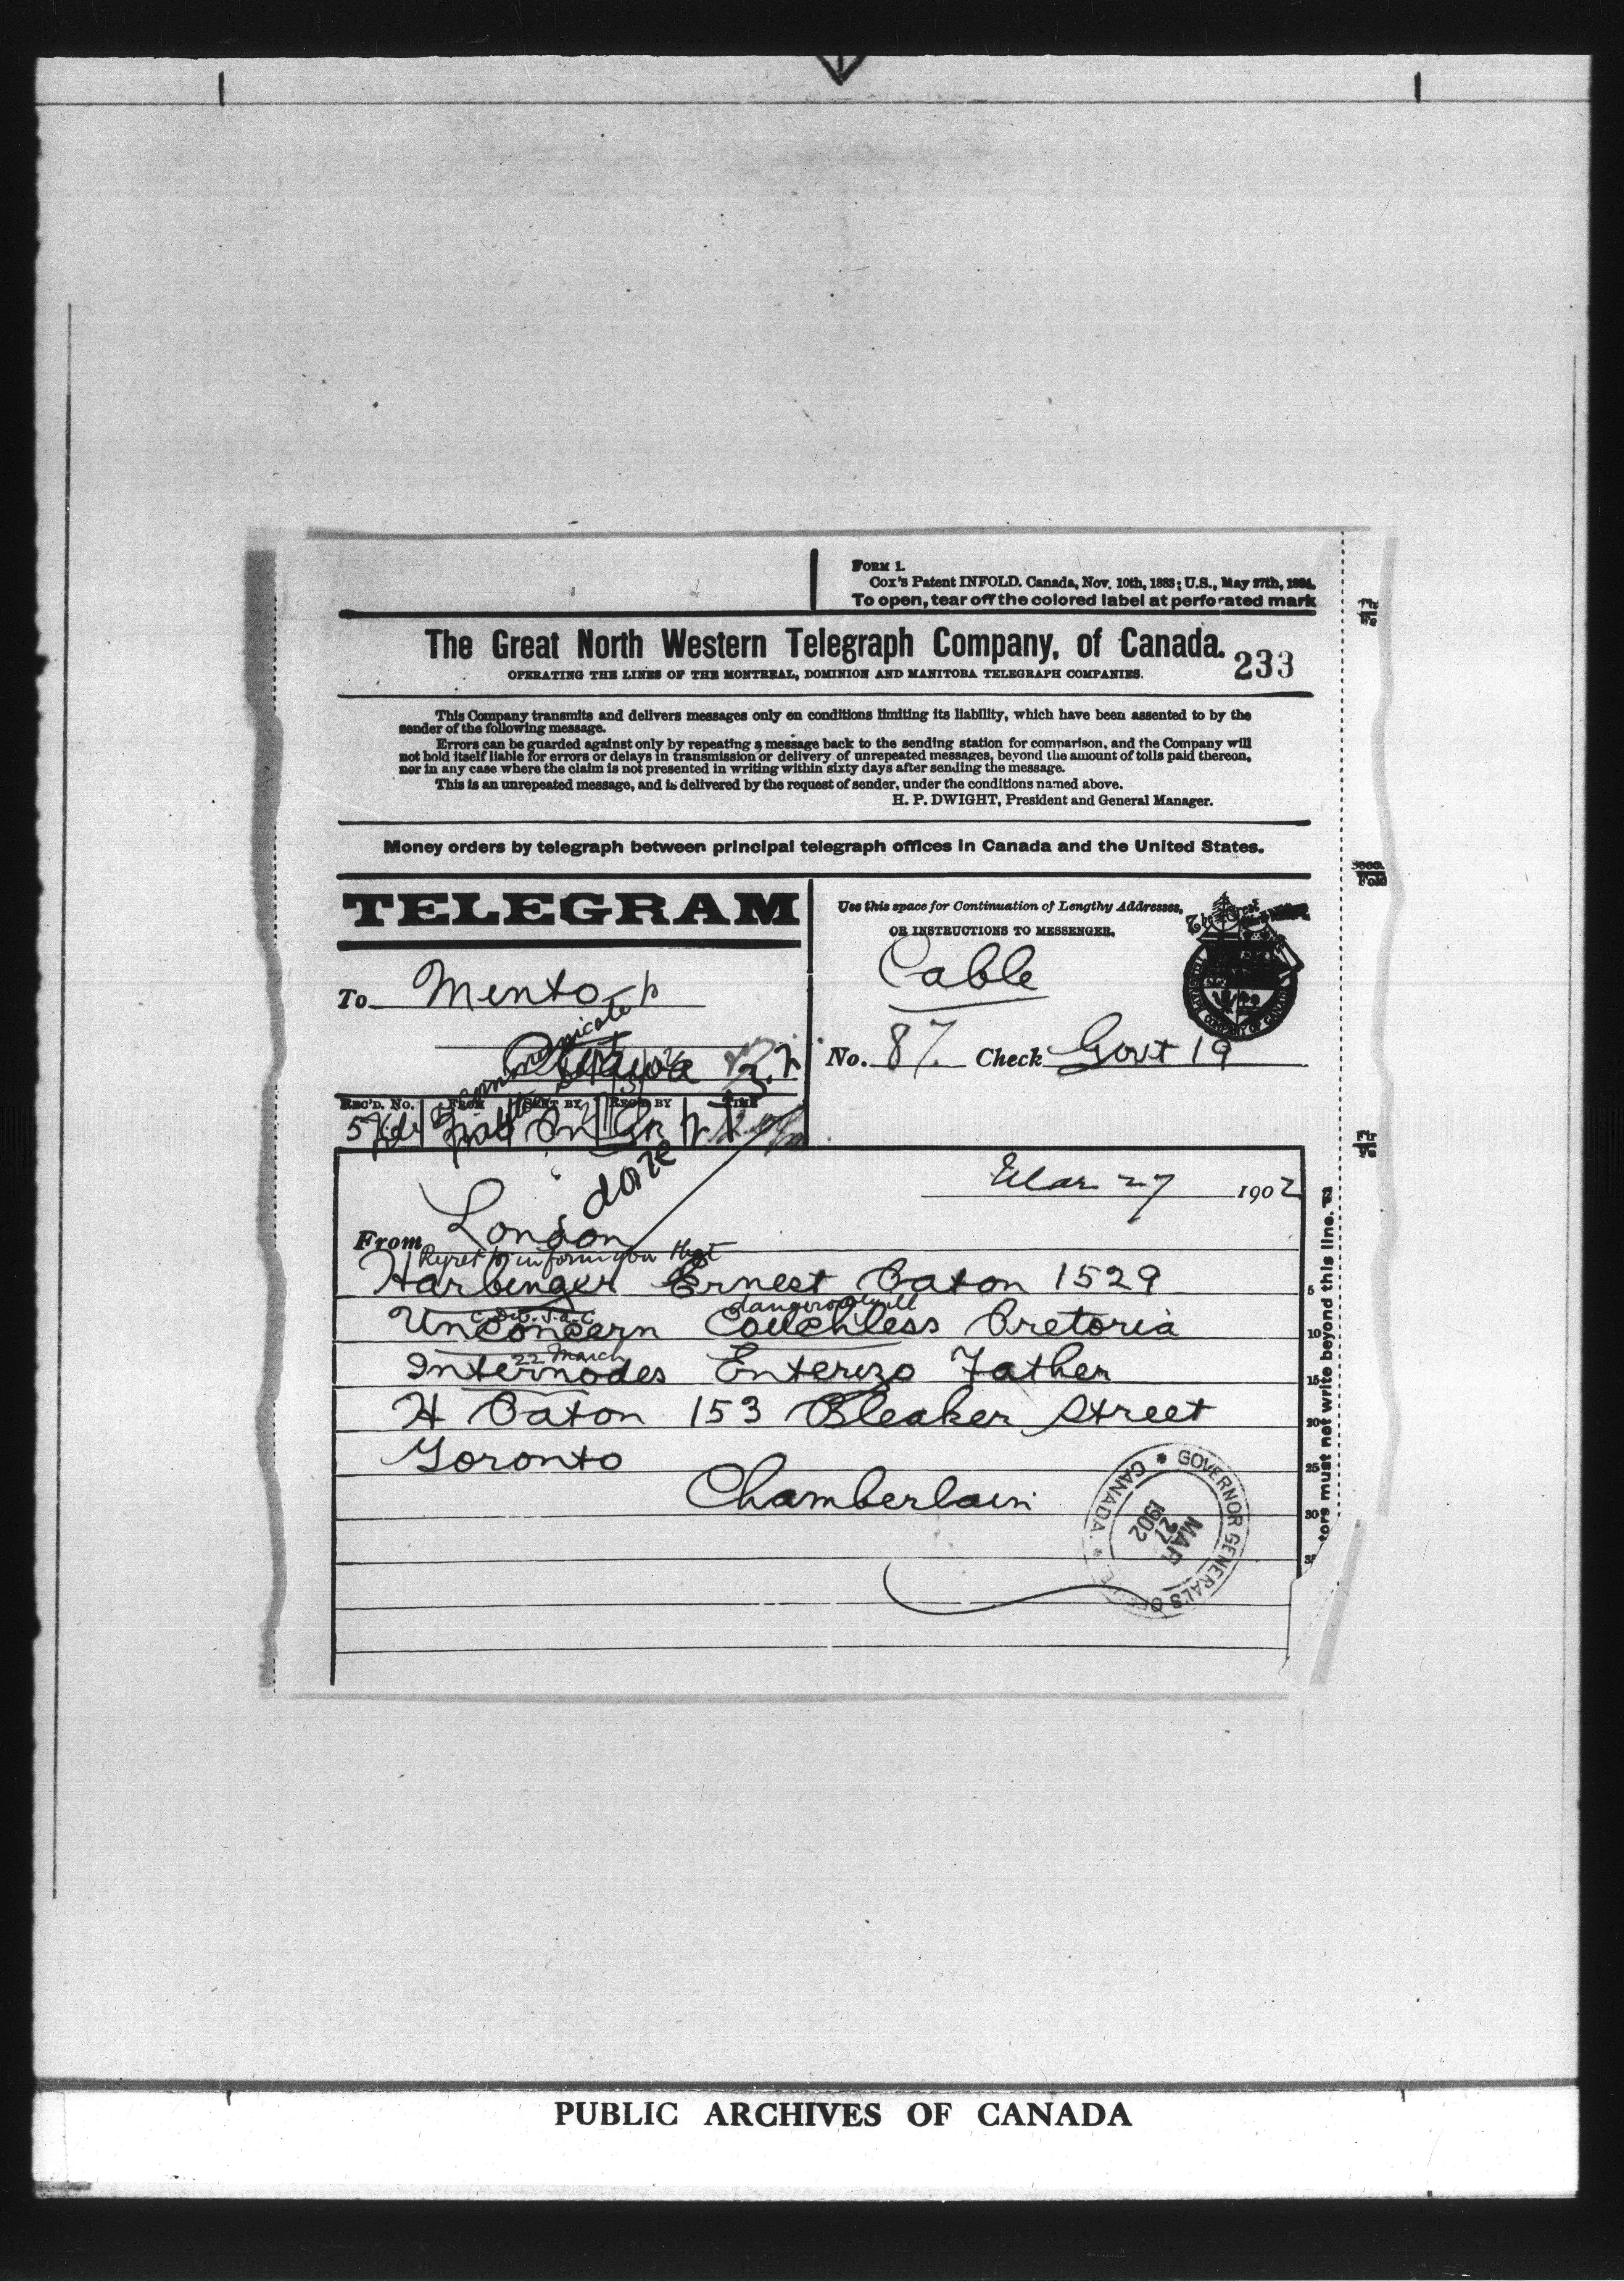 FORM 1.
Cox's Patent INFOLD. Canada, Nov. 10th, 1883; U.S., May 27th, 1884.
To open, tear off the colored label at perforated mark
The Great North Western Telegraph Company, of Canada.
233
OPERATING THE LINES OF THE MONTREAL, DOMINION AND MANITOBA TELEGRAPH COMPANIES.
This Company transmits and delivers messages only on conditions limiting its liability, which have been assented to by the
sender of the following message.
Errors can be guarded against only by repeating a message back to the sending station for comparison, and the Company will
not hold itself liable for errors or delays in transmission or delivery of unrepeated messages, beyond the amount of tolls paid thereon,
nor in any case where the claim is not presented in writing within sixty days after sending the message.
This is an unrepeated message, and is delivered by the request of sender, under the conditions named above.
H. P. DWIGHT, President and General Manager.
Money orders by telegraph between principal telegraph offices in Canada and the United States.
TELEGRAM
Use this space for Continuation of Lengthy Addresses,
OR INSTRUCTIONS TO MESSENGER.
Cable
To Minto
Ottawa
No. 87. Check Govt 19
REC'D. No. FROM SENT BY REC'D BY TIME
done
Mar 27 1902
From London
Regret to inform you that
Harbinger Ernest Paton 1529
C. Div. S.A.C. dangerously ill
Unconcern Couchless Pretoria
22 March
Internodes Enterizo Father
H Paton 153 Bleaker Street
Toronto
Chamberlain
GOVERNOR GENERAL'S OFFICE CANADA
MAR
27
1902
5
10
15
20
25
30
35
tors must not write beyond this line.
PUBLIC ARCHIVES OF CANADA